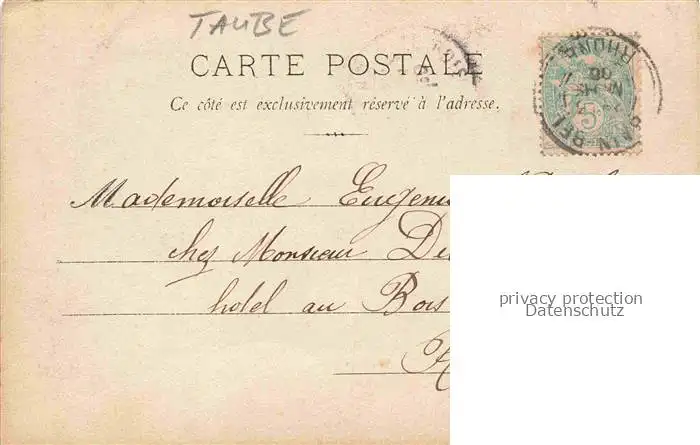 TAUBE
CARTE POSTALE
Ce côté est exclusivement réservé à l'adresse.
5
RHONE
Mademoiselle
chez Monsieur
hotel au Bois
privacy protection
Datenschutz